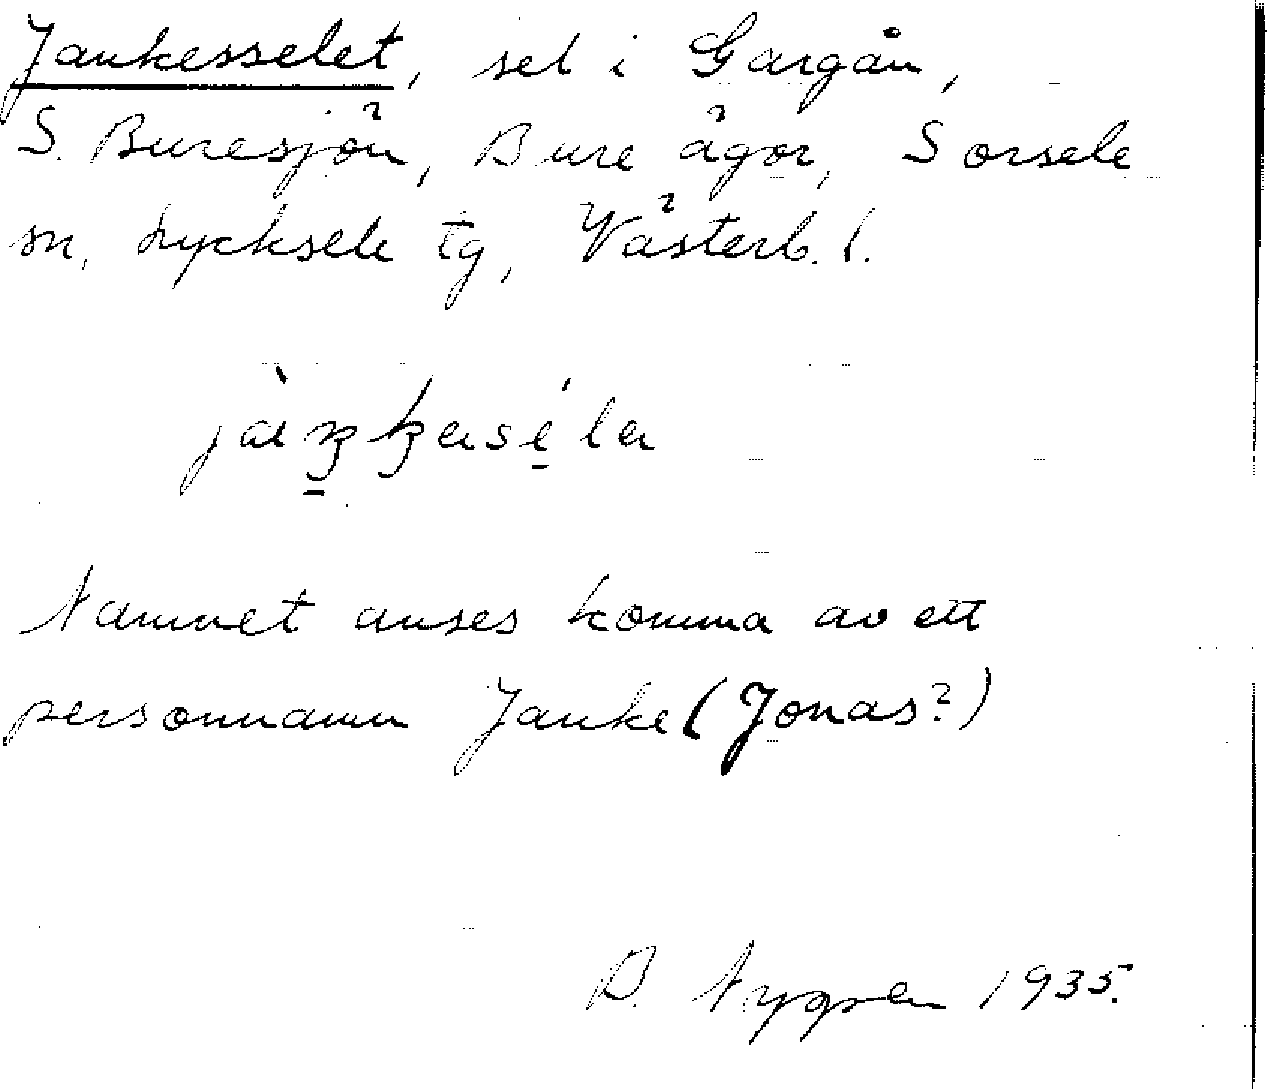 Jankesselet, sel i Gargån,
S. Buresjön, Bure ägor, Sorsele
sn, Lycksele tg, Västerb. l.
Namnet anses komma av ett
personnamn Janke (Jonas?)
B. Nygren 1935.